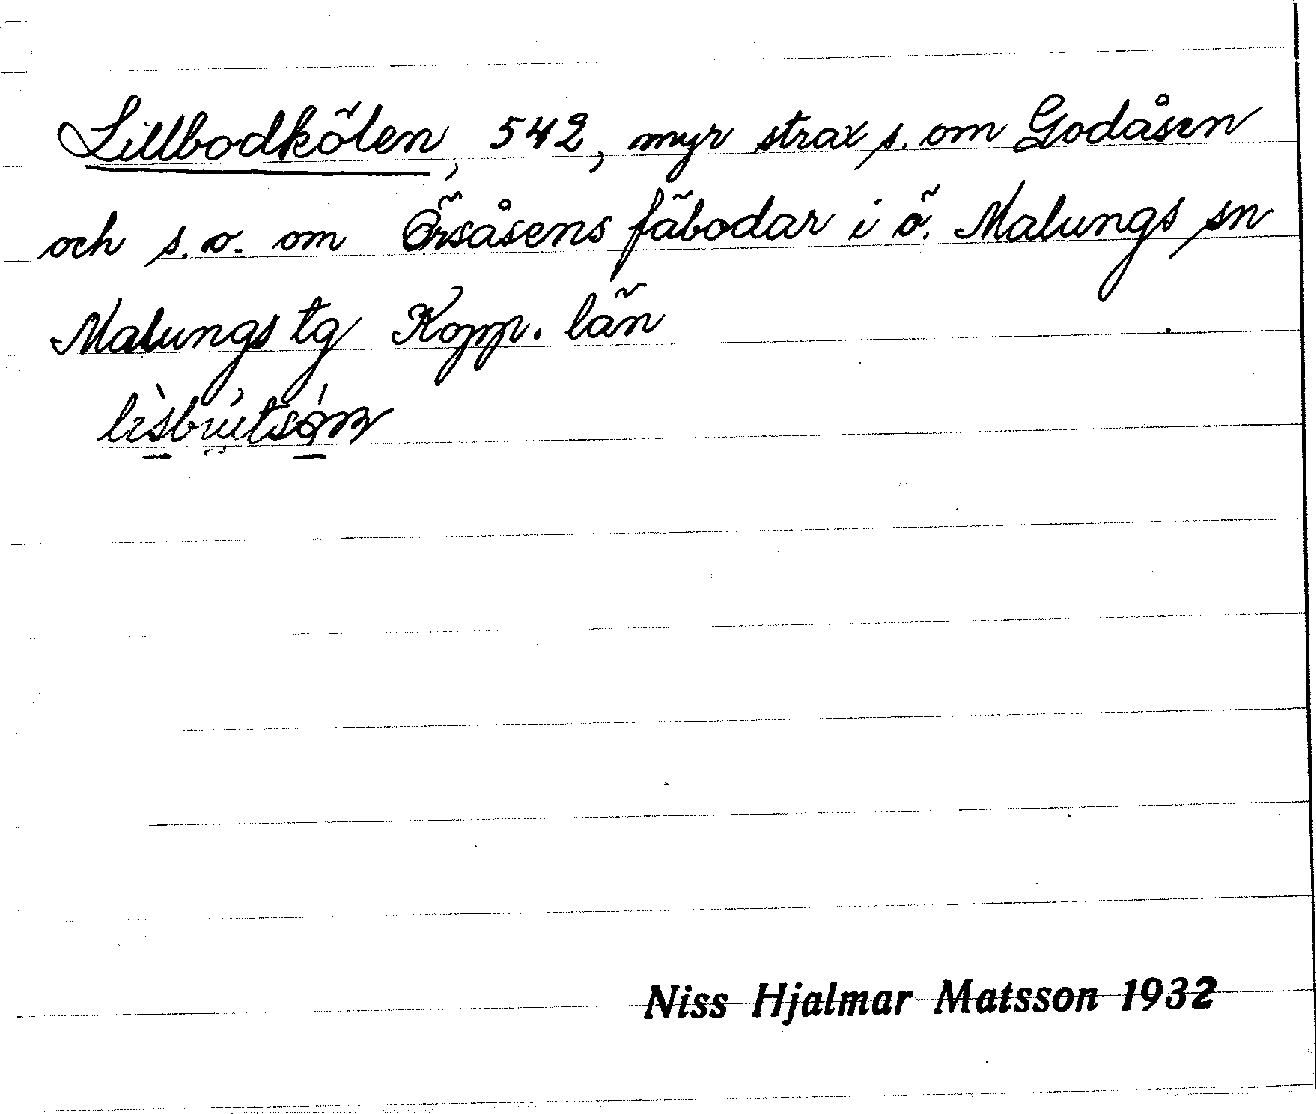 Lillbodkölen, 542, myr strax s. om Godåsen
och s.v. om Örsåsens fäbodar i ö. Malungs sn
Malungs tg Kopp. län
Niss Hjalmar Matsson 1932